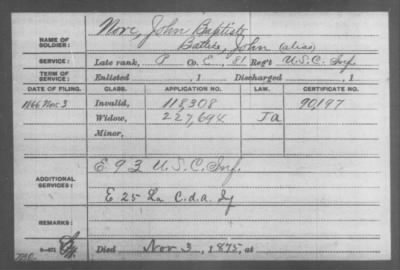 NAME OF SOLDIER: Nore, John Baptiste
Battice, John (alias)
SERVICE: Late rank, P Co. E, 81 Reg't U.S.C. Inf.
TERM OF SERVICE: Enlisted , 1 Discharged , 1
DATE OF FILING. CLASS. APPLICATION NO. LAW. CERTIFICATE NO.
1866 Nov. 3 Invalid, 118,308 90,197
Widow, 227,694 Ia
Minor,
ADDITIONAL SERVICES: E 93 U.S.C. Inf.
E 25 La C.d.A. If
REMARKS:
Died Nov 3, 1875, at